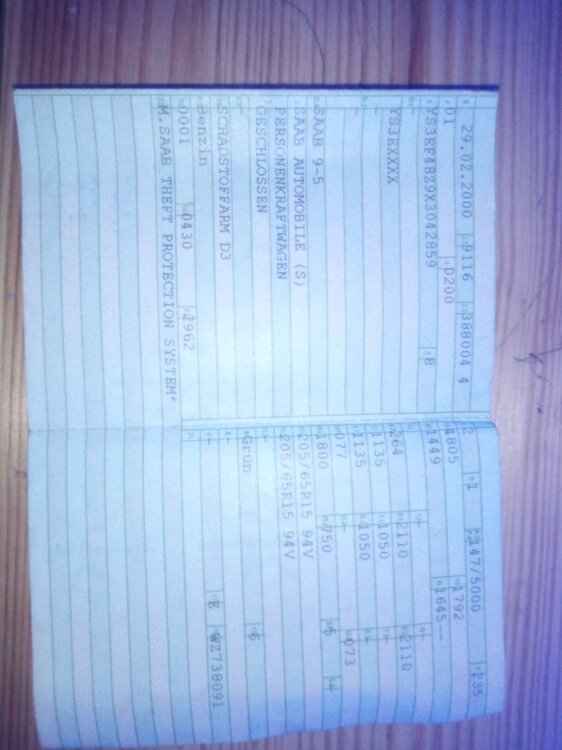 29.02.2000 9116 388004 4
01 0200
YS3EF48Z9X3042859 B
YS3EXXXX
SAAB 9-5
SAAB AUTOMOBILE (S)
PERSONENKRAFTWAGEN
GESCHLOSSEN
SCHADSTOFFARM D3
Benzin
0001 0430 2962
M.SAAB THEFT PROTECTION SYSTEM*
2 1 147/5000 235
4805 1792
1449 1645---
264 2110 2110
1135 1050
1135 1050
077 073
1800 750 5
205/65R15 94V
205/65R15 94V
Grün 6
E WZ738091